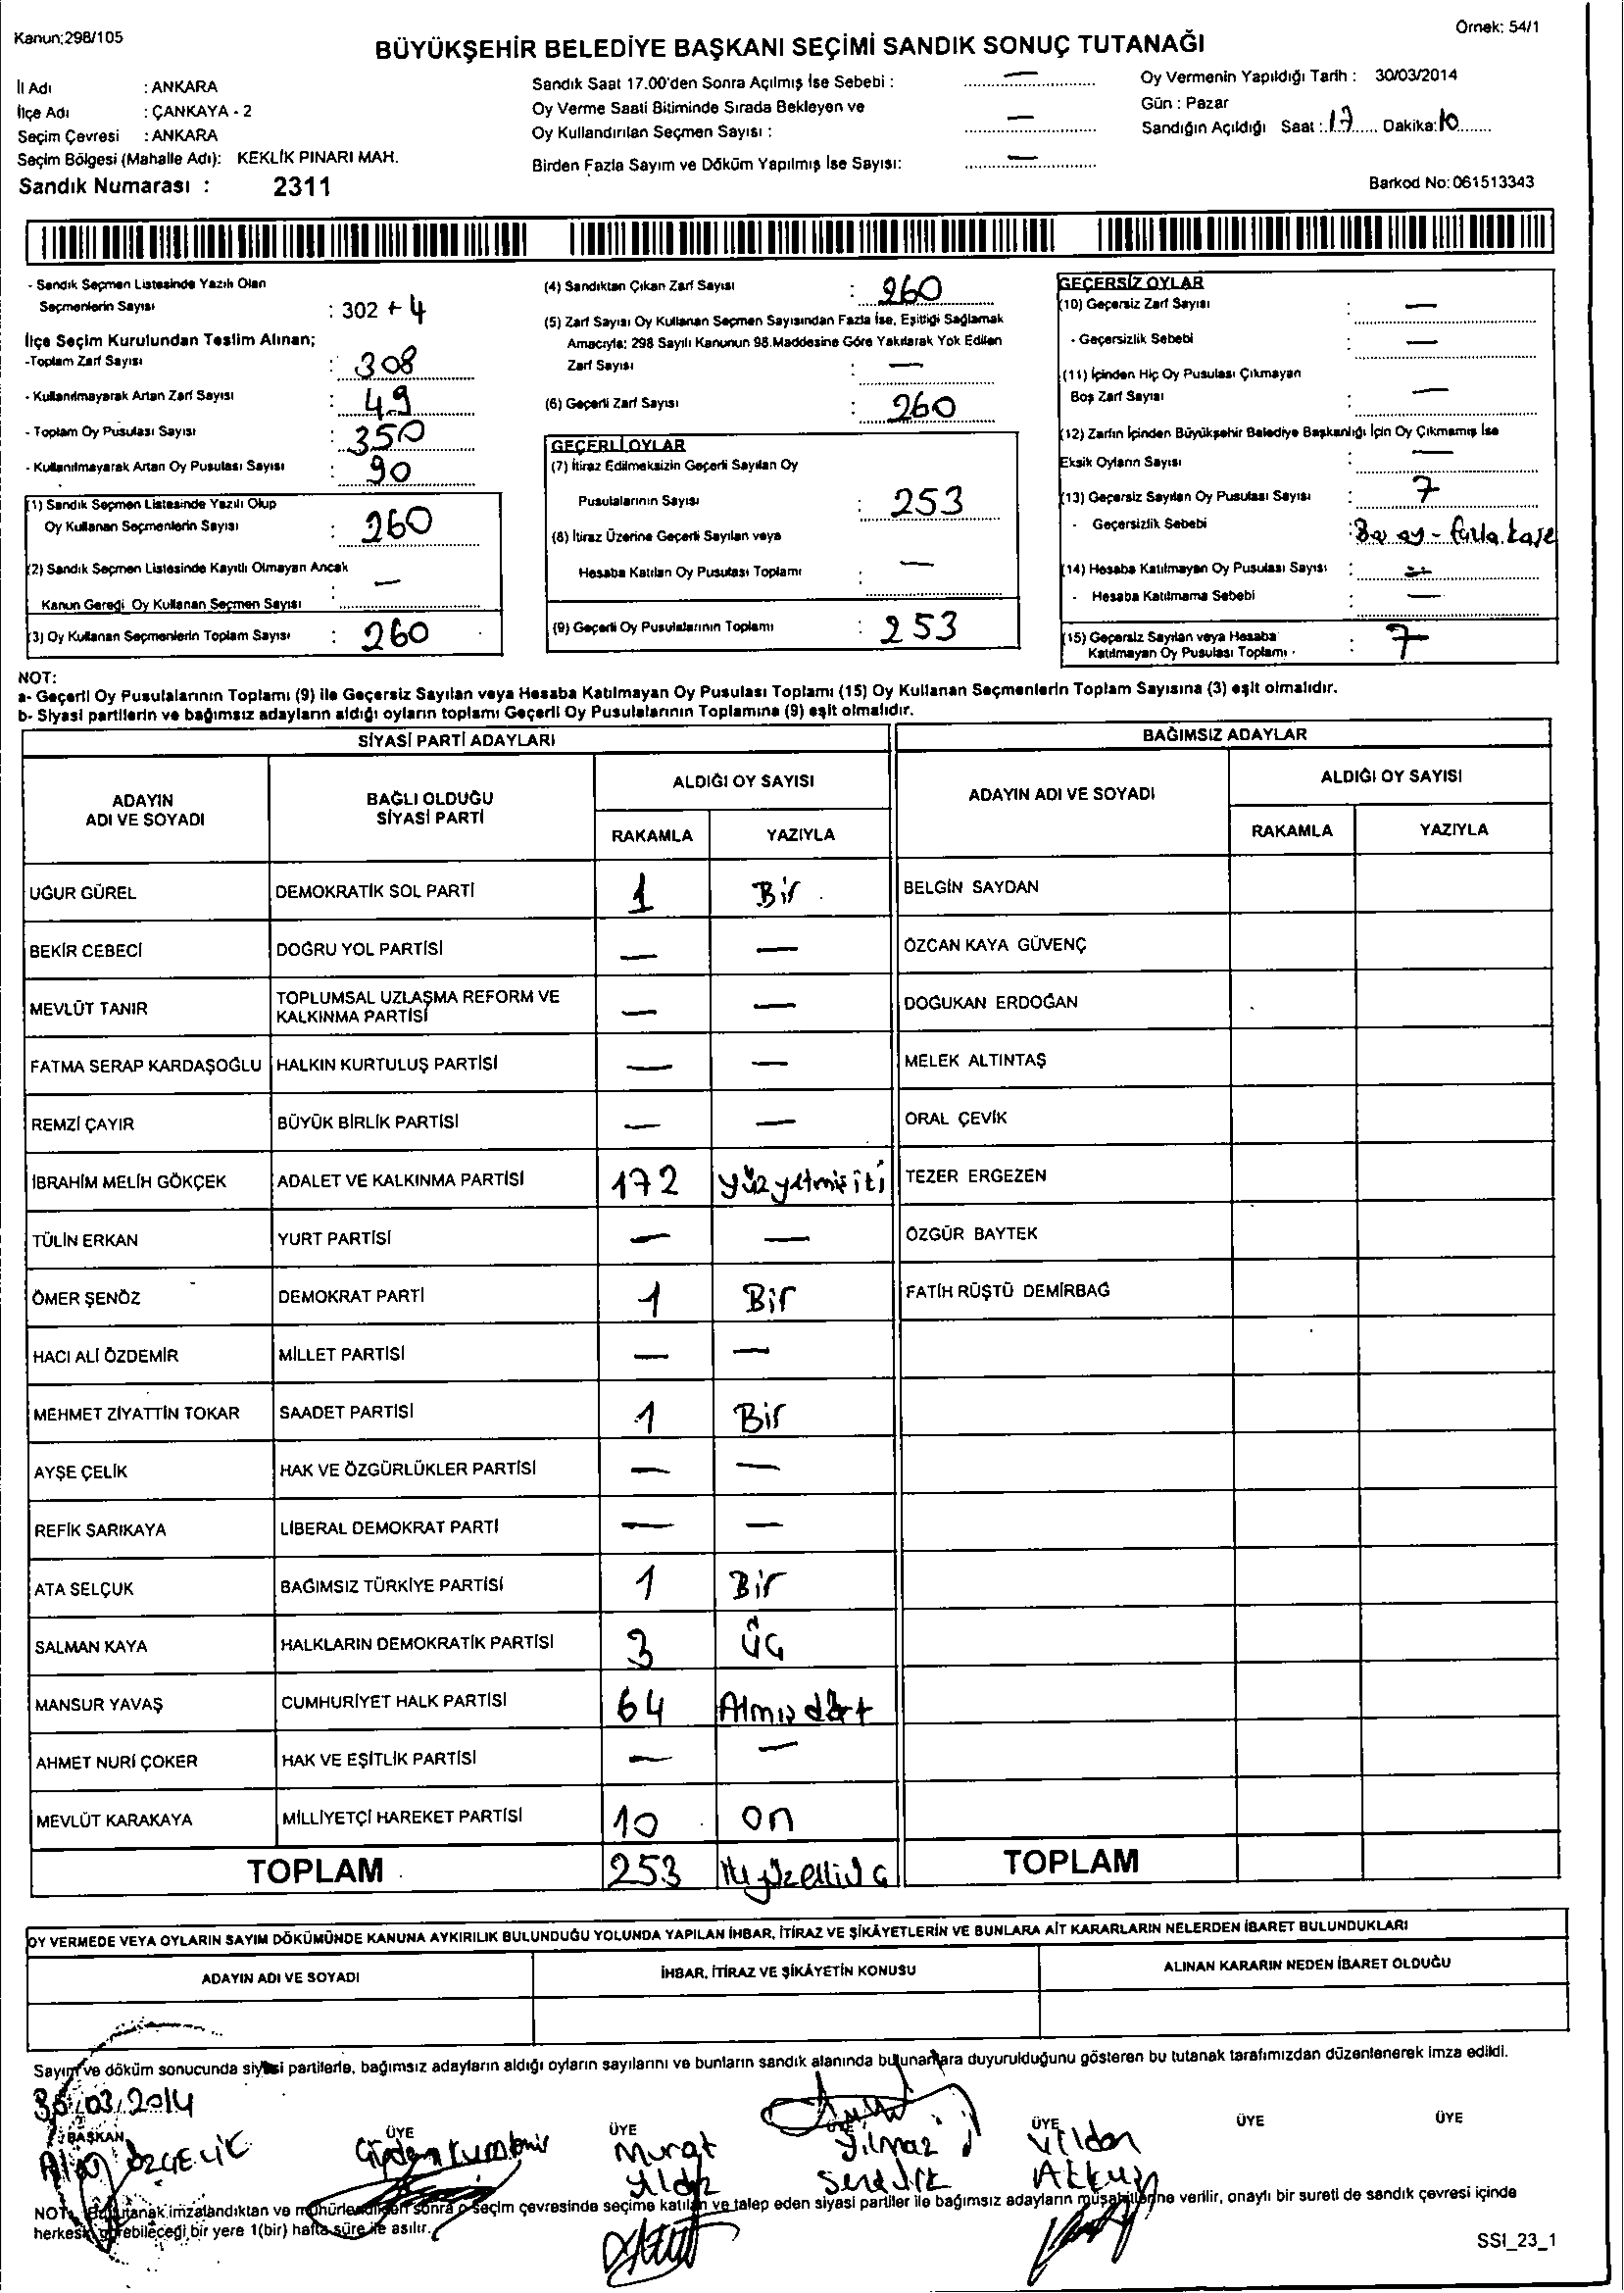 Kanun:298/105
Örnek: 54/1
BÜYÜKŞEHİR BELEDİYE BAŞKANI SEÇİMİ SANDIK SONUÇ TUTANAĞI
İl Adı : ANKARA
İlçe Adı : ÇANKAYA - 2
Seçim Çevresi : ANKARA
Seçim Bölgesi (Mahalle Adı): KEKLİK PINARI MAH.
Sandık Numarası : 2311
Sandık Saat 17.00'den Sonra Açılmış İse Sebebi : —
Oy Verme Saati Bitiminde Sırada Bekleyen ve
Oy Kullandırılan Seçmen Sayısı : —
Birden Fazla Sayım ve Döküm Yapılmış İse Sayısı: —
Oy Vermenin Yapıldığı Tarih : 30/03/2014
Gün : Pazar
Sandığın Açıldığı Saat : 17 Dakika: 10
Barkod No: 061513343
- Sandık Seçmen Listesinde Yazılı Olan
Seçmenlerin Sayısı : 302 + 4
İlçe Seçim Kurulundan Teslim Alınan;
-Toplam Zarf Sayısı : 308
- Kullanılmayarak Artan Zarf Sayısı : 49
- Toplam Oy Pusulası Sayısı : 350
- Kullanılmayarak Artan Oy Pusulası Sayısı : 90
(1) Sandık Seçmen Listesinde Yazılı Olup
Oy Kullanan Seçmenlerin Sayısı : 260
(2) Sandık Seçmen Listesinde Kayıtlı Olmayan Ancak
Kanun Gereği Oy Kullanan Seçmen Sayısı : —
(3) Oy Kullanan Seçmenlerin Toplam Sayısı : 260
(4) Sandıktan Çıkan Zarf Sayısı : 260
(5) Zarf Sayısı Oy Kullanan Seçmen Sayısından Fazla İse, Eşitliği Sağlamak
Amacıyla; 298 Sayılı Kanunun 98.Maddesine Göre Yakılarak Yok Edilen
Zarf Sayısı : —
(6) Geçerli Zarf Sayısı : 260
GEÇERLİ OYLAR
(7) İtiraz Edilmeksizin Geçerli Sayılan Oy
Pusulalarının Sayısı : 253
(8) İtiraz Üzerine Geçerli Sayılan veya
Hesaba Katılan Oy Pusulası Toplamı : —
(9) Geçerli Oy Pusulalarının Toplamı : 253
GEÇERSİZ OYLAR
(10) Geçersiz Zarf Sayısı : —
- Geçersizlik Sebebi : —
(11) İçinden Hiç Oy Pusulası Çıkmayan
Boş Zarf Sayısı : —
(12) Zarfın İçinden Büyükşehir Belediye Başkanlığı İçin Oy Çıkmamış İse
Eksik Oyların Sayısı : —
(13) Geçersiz Sayılan Oy Pusulası Sayısı : 7
- Geçersizlik Sebebi : oy - fazla kaşe
(14) Hesaba Katılmayan Oy Pusulası Sayısı : —
- Hesaba Katılmama Sebebi : —
(15) Geçersiz Sayılan veya Hesaba
Katılmayan Oy Pusulası Toplamı : 7
NOT:
a- Geçerli Oy Pusulalarının Toplamı (9) ile Geçersiz Sayılan veya Hesaba Katılmayan Oy Pusulası Toplamı (15) Oy Kullanan Seçmenlerin Toplam Sayısına (3) eşit olmalıdır.
b- Siyasi partilerin ve bağımsız adayların aldığı oyların toplamı Geçerli Oy Pusulalarının Toplamına (9) eşit olmalıdır.
SİYASİ PARTİ ADAYLARI
BAĞIMSIZ ADAYLAR
ADAYIN ADI VE SOYADI BAĞLI OLDUĞU SİYASİ PARTİ ALDIĞI OY SAYISI RAKAMLA YAZIYLA
ADAYIN ADI VE SOYADI ALDIĞI OY SAYISI RAKAMLA YAZIYLA
UĞUR GÜREL DEMOKRATİK SOL PARTİ 1 Bir BELGİN SAYDAN
BEKİR CEBECİ DOĞRU YOL PARTİSİ — — ÖZCAN KAYA GÜVENÇ
MEVLÜT TANIR TOPLUMSAL UZLAŞMA REFORM VE KALKINMA PARTİSİ — — DOĞUKAN ERDOĞAN
FATMA SERAP KARDAŞOĞLU HALKIN KURTULUŞ PARTİSİ — — MELEK ALTINTAŞ
REMZİ ÇAYIR BÜYÜK BİRLİK PARTİSİ — — ORAL ÇEVİK
İBRAHİM MELİH GÖKÇEK ADALET VE KALKINMA PARTİSİ 172 yüzyetmişiki TEZER ERGEZEN
TÜLİN ERKAN YURT PARTİSİ — — ÖZGÜR BAYTEK
ÖMER ŞENÖZ DEMOKRAT PARTİ 1 Bir FATİH RÜŞTÜ DEMİRBAĞ
HACI ALİ ÖZDEMİR MİLLET PARTİSİ — —
MEHMET ZİYATTİN TOKAR SAADET PARTİSİ 1 Bir
AYŞE ÇELİK HAK VE ÖZGÜRLÜKLER PARTİSİ — —
REFİK SARIKAYA LİBERAL DEMOKRAT PARTİ — —
ATA SELÇUK BAĞIMSIZ TÜRKİYE PARTİSİ 1 Bir
SALMAN KAYA HALKLARIN DEMOKRATİK PARTİSİ 3 üç
MANSUR YAVAŞ CUMHURİYET HALK PARTİSİ 64 Atmış dört
AHMET NURİ ÇOKER HAK VE EŞİTLİK PARTİSİ — —
MEVLÜT KARAKAYA MİLLİYETÇİ HAREKET PARTİSİ 10 on
TOPLAM 253 ikiyüzelliüç TOPLAM
OY VERMEDE VEYA OYLARIN SAYIM DÖKÜMÜNDE KANUNA AYKIRILIK BULUNDUĞU YOLUNDA YAPILAN İHBAR, İTİRAZ VE ŞİKÂYETLERİN VE BUNLARA AİT KARARLARIN NELERDEN İBARET BULUNDUKLARI
ADAYIN ADI VE SOYADI İHBAR, İTİRAZ VE ŞİKÂYETİN KONUSU ALINAN KARARIN NEDEN İBARET OLDUĞU
Sayım ve döküm sonucunda siyasi partilerle, bağımsız adayların aldığı oyların sayılarını ve bunların sandık alanında bulunanlara duyurulduğunu gösteren bu tutanak tarafımızdan düzenlenerek imza edildi.
30/03/2014
BAŞKAN ÜYE ÜYE ÜYE ÜYE ÜYE ÜYE
Murat Yılmaz Vildan
Yıldız Akkuş
NOT: Bu tutanak imzalandıktan ve mühürlendikten sonra o seçim çevresinde seçime katılan ve talep eden siyasi partiler ile bağımsız adayların müşahitlerine verilir, onaylı bir sureti de sandık çevresi içinde
herkesin görebileceği bir yere 1(bir) hafta süre ile asılır.
SSI_23_1